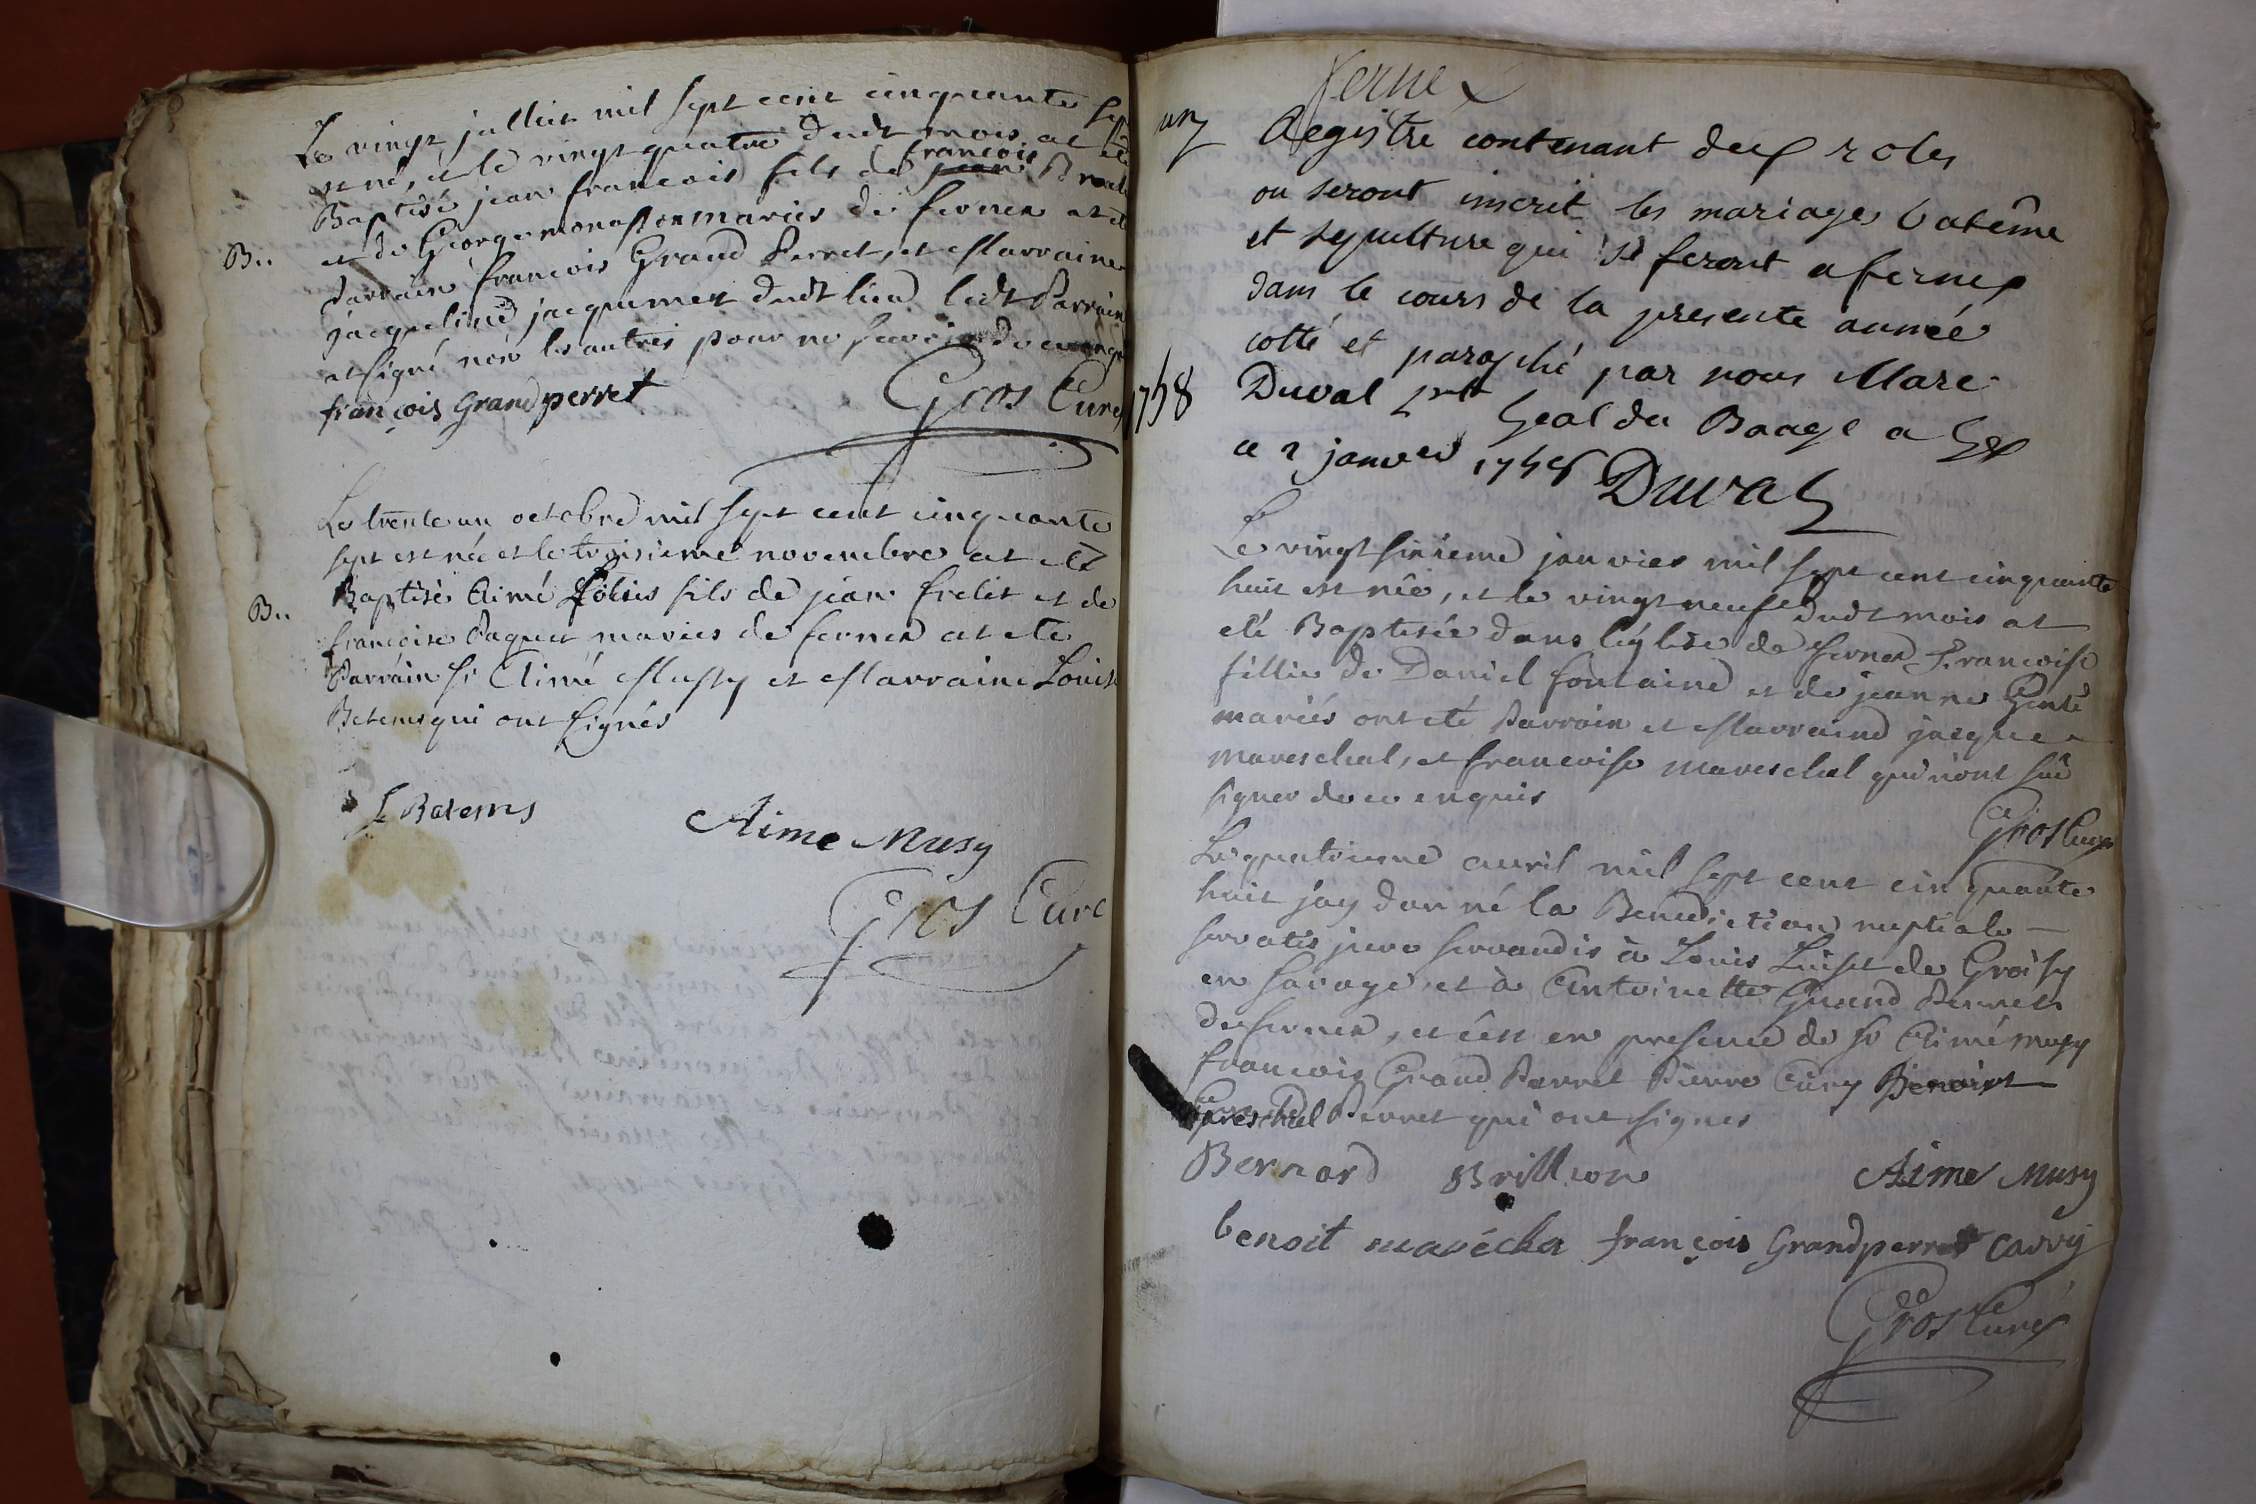 Le vingt julliet mil sept cent cinquante sept
est né, et le vingt quatre dudt mois at eté
francois
Baptisé jean francois fils de jean
et de George monasson mariés de fernex at eté
B..
Parrain francois Grand Perret, et Marraine
jacqueline jacquemet dudt lieu ledt Parrain
at signé nōn les autres pour ne scavoir de ce enquis
françois Grandperret
Gros Curé
Le trente un octobre mil sept cent cinquante
sept est né et le troisieme novembre at eté
Baptisé Aimé Loüis fils de jean frelit et de
B..
francoise Paquet mariés de fernex at eté
Parrain sr Aimé Mussy et Marraine Louise
Betems qui ont signés
L Betems
Aime Musy
Gros Curé
fernex
un
Registre contenant deux roles
ou seront inscrit les mariages batême
et sepulture qui se feront a fernex
dans le cours de la presente année
cotté et paraphé par nous Marc
1758
Duval Lnt Geal du Baage a Gex
ce 2 janver 1758 Duval
Le vingt sixieme janvier mil sept cent cinquante
huit est née, et le vingt neuf dudt mois at
eté Baptisée dans léglise de fernex Francoise
fillie de Daniel fontaine et de jeanne Genté
mariés ont eté Parrain et Marraine jacque
mareschal, et francoise mareschal qui nont sûe
signer de ce enquis
Gros Curé
Le quatrieme avril mil sept cent cinquante
huit jáy donné la Benediction nuptiale
servatis jure servandis à Louis Luiset de Groisy
en savoye, et à Antoinette Grand Perret
de fernex, et cést en presence de sr Aimé musy
francois Grand Perret Pierre Cary Benoist
Perret qui ont signes
Bernard Brillion
Aime Musy
benoit maréchal françois Grandperret Carry
Gros Curé